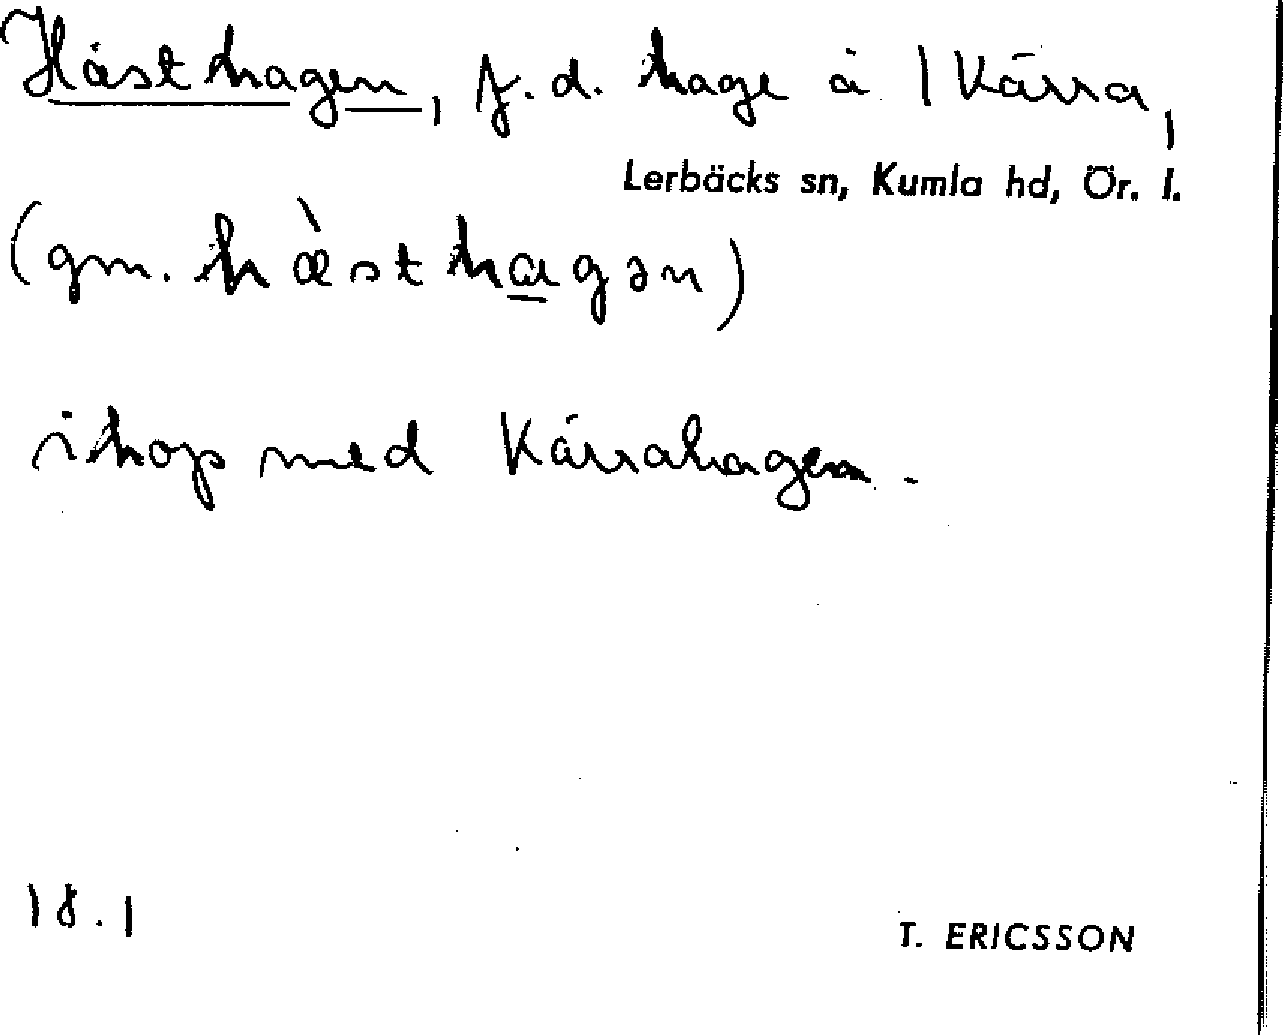 Hästhagen, f.d. hage å 1 Kärra,
Lerbäcks sn, Kumla hd, Ör. l.
(gm. hæ̀sthagən)
ihop med Kärrahagen.
18.1
T. ERICSSON